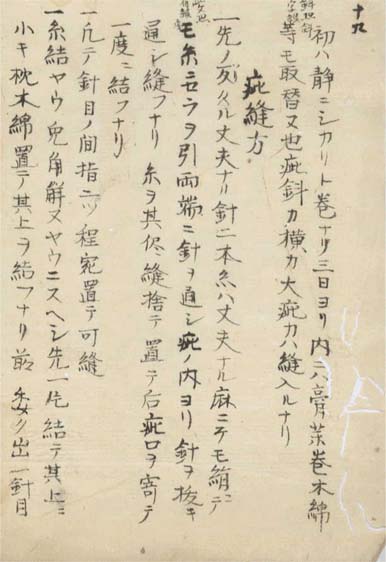 十九
初ハ静ニシカリト巻ナリ三日ヨリ内ニハ膏薬巻木綿
等モ取替又也疵斜カ横カ大疵カハ縫入ルナリ
疵縫方
一先ノ針ハ丈夫ナリ針二本糸ハ丈夫ナル麻ニテモ絹ニテ
モ糸ニロウヲ引両端ニ針ヲ通シ疵ノ内ヨリ針ヲ抜キ
通シ縫フナリ糸ヲ其侭縫捨テ置テ后疵口ヲ寄テ
一度ニ結フナリ
一凡テ針目ノ間指二ツ程宛置テ可縫
一糸結ヤウ兎角解ヌヤウニスヘシ先一片結テ其上ニ
小キ枕木綿置テ其上ヲ結フナリ前委ク出一針目